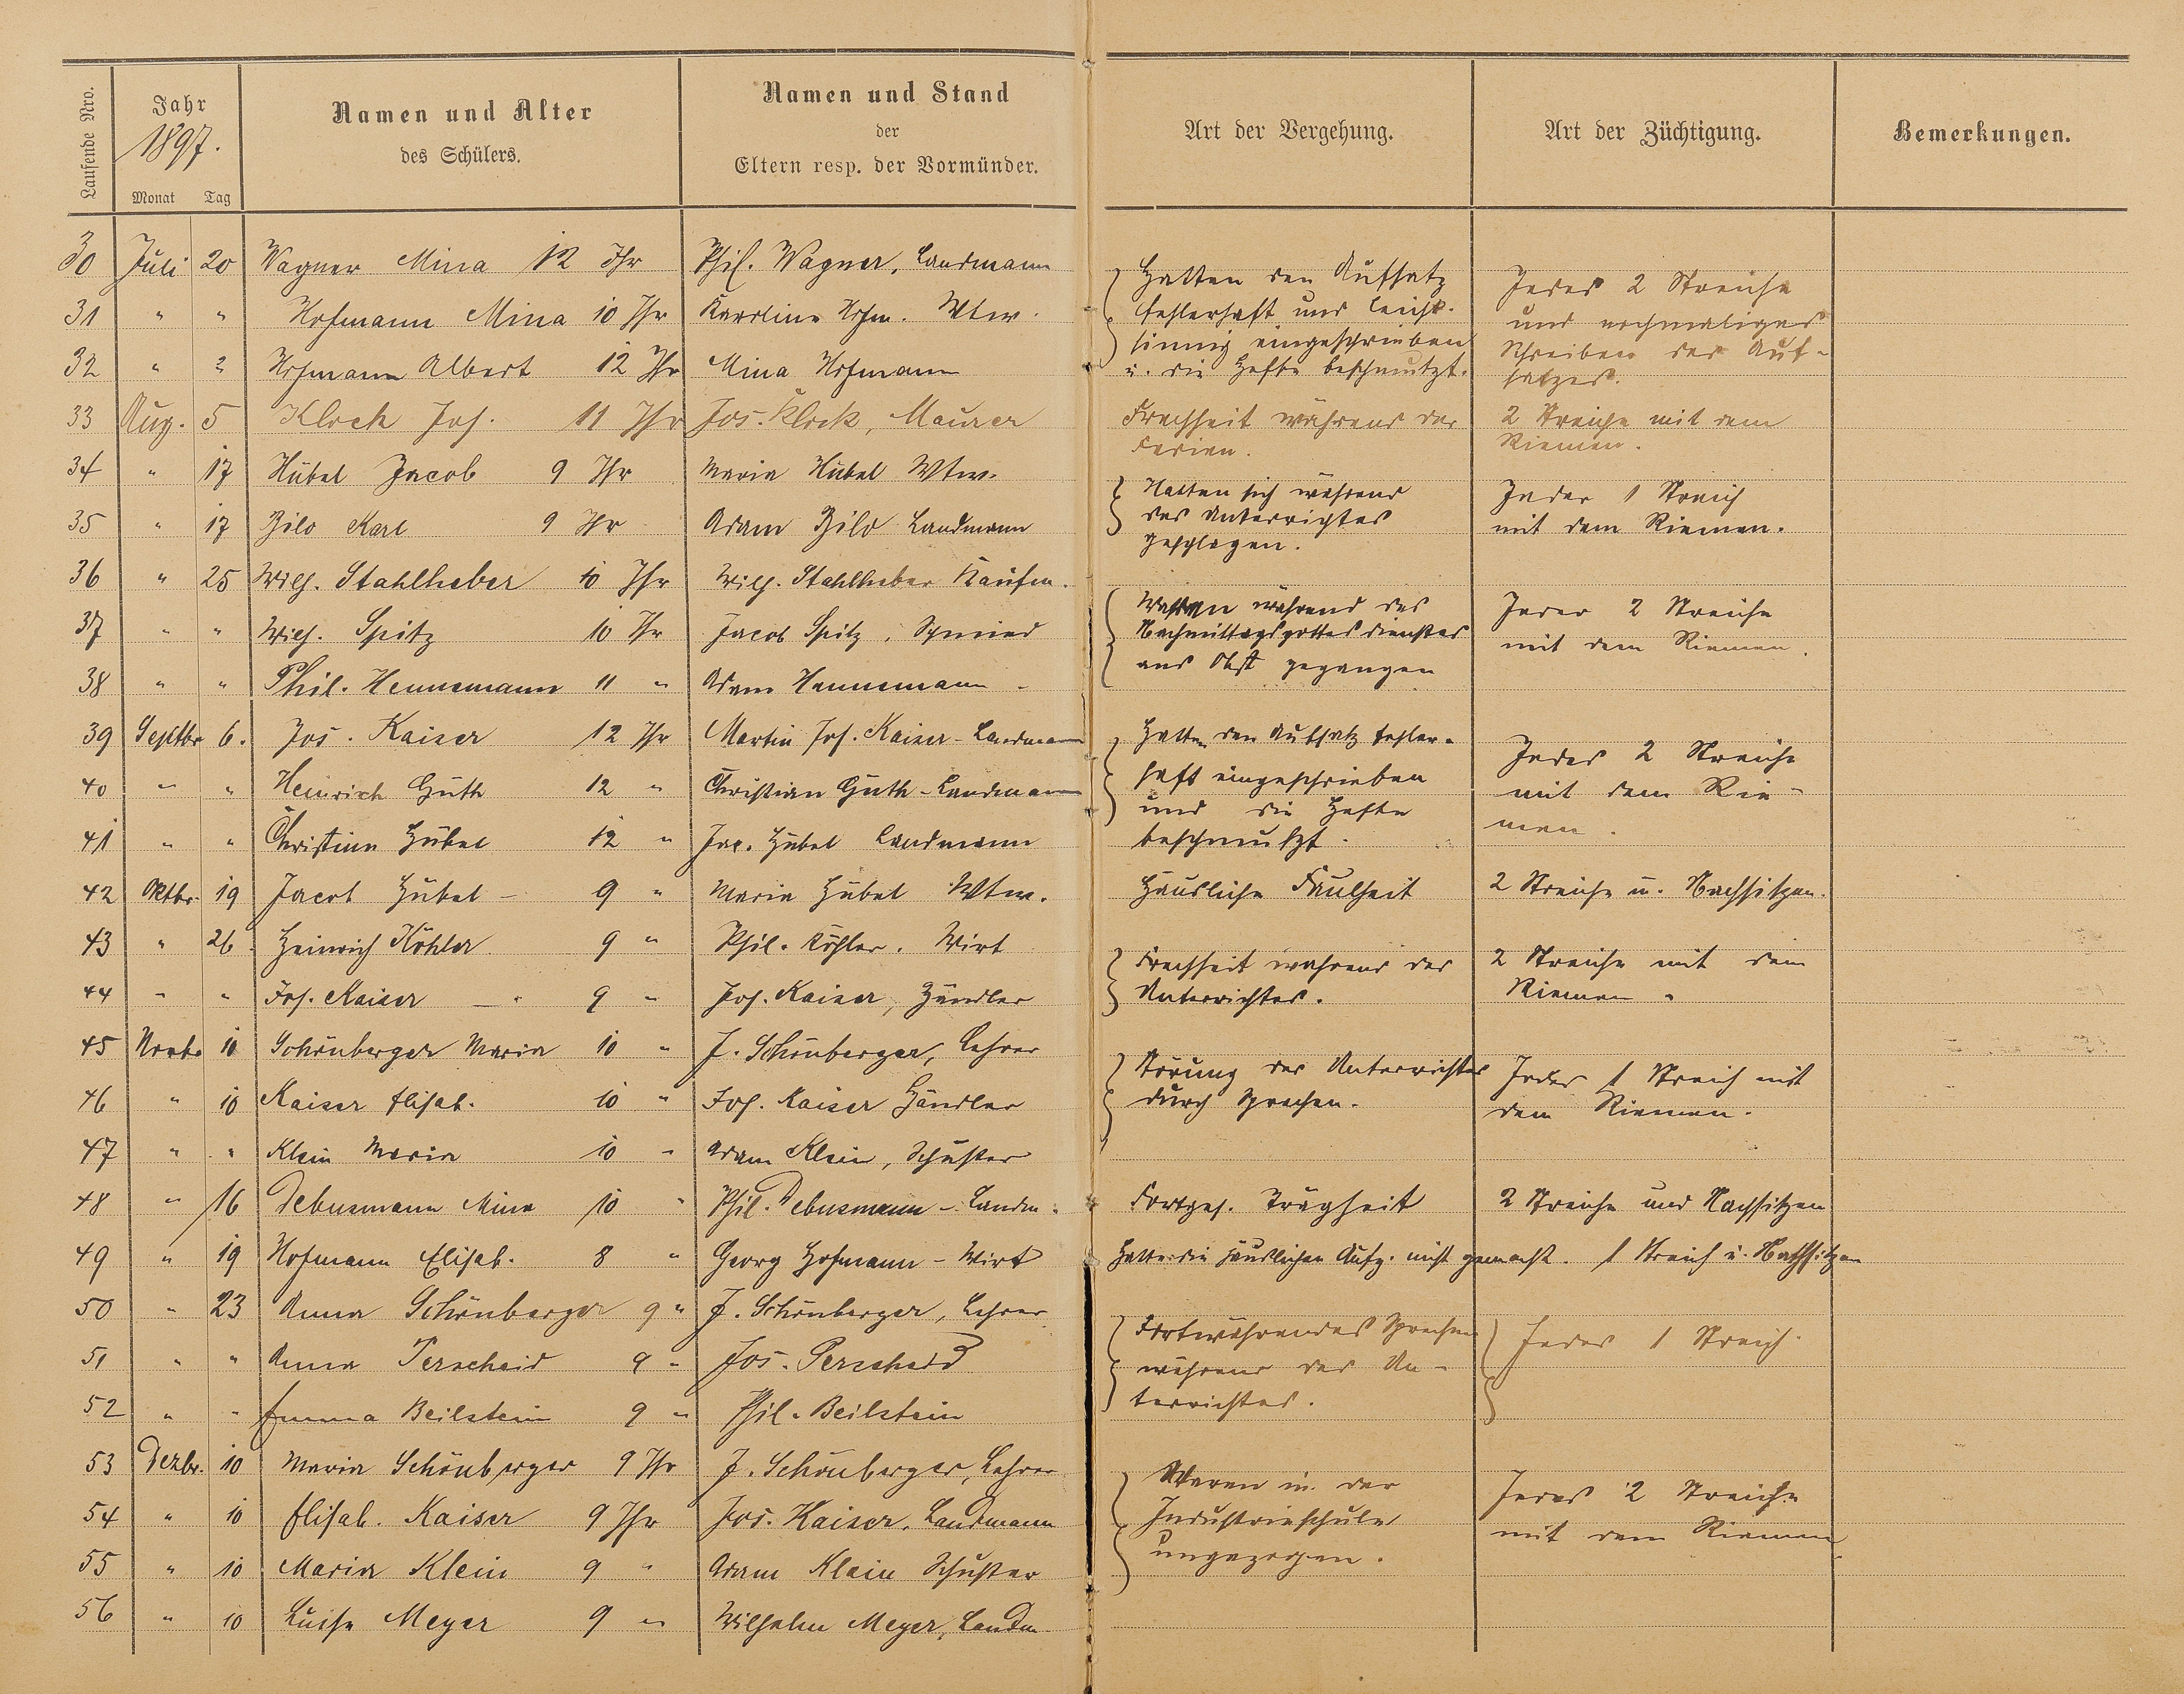 Laufende Nro.
Jahr
1897.
Monat Tag
Namen und Alter
des Schülers.
Namen und Stand
der
Eltern resp. der Vormünder.
Art der Vergehung.
Art der Züchtigung.
Bemerkungen.
30 Juli 20 Wagner Mina 12 Jhr Phil. Wagner, Landmann
31 " " Hofmann Mina 10 Jhr Karoline Hofm. Wtw.
32 " " Hofmann Albert 12 Jhr Mina Hofmann
Hatten den Aufsatz
fehlerhaft und leicht-
sinnig eingeschrieben
u. die Hefte beschmutzt.
Jedes 2 Streiche
und nochmaliges
Schreiben des Auf-
satzes.
33 Aug. 5 Klock Jos. 11 Jhr Jos. Klock, Maurer
Frechheit während der
Ferien.
2 Streiche mit dem
Riemen.
34 " 17 Hübel Jacob 9 Jhr Maria Hübel Wtw.
35 " 17 Bilo Karl 9 Jhr Adam Bilo Landmann
Hatten sich während
des Unterrichtes
geschlagen.
Jeder 1 Streich
mit dem Riemen.
36 " 25 Wilh. Stahlheber 10 Jhr Wilh. Stahlheber Kaufm.
37 " " Wilh. Spitz 10 Jhr Jacob Spitz, Schmied
38 " " Phil. Hennemann 11 " Adam Hennemann -
Waren während des
Nachmittagsgottesdienstes
ans Obst gegangen
Jeder 2 Streiche
mit dem Riemen.
39 Septbr 6. Jos. Kaiser 12 Jhr Martin Jos. Kaiser - Landmann
40 " " Heinrich Guth 12 " Christian Guth - Landmann
41 " " Christina Hübel 12 " Jac. Hübel Landmann
Hatten den Aufsatz fehler-
haft eingeschrieben
und die Hefte
beschmutzt.
Jedes 2 Streiche
mit dem Rie-
men.
42 Oktbr. 19 Jacob Hübel - 9 " Maria Hübel Wtw.
Häusliche Faulheit
2 Streiche u. Nachsitzen.
43 " 26. Heinrich Köhler 9 " Phil. Köhler. Wirt
44 " " Jos. Kaiser - " 9 " Jos. Kaiser, Händler
Frechheit während des
Unterrichtes.
2 Streiche mit dem
Riemen.
45 Novbr 10 Schönberger Maria 10 " J. Schönberger, Lehrer
46 " 10 Kaiser Elisab. 10 " Jos. Kaiser Händler
47 " " Klein Maria 10 " Adam Klein, Schuster
Störung des Unterrichtes
durch Sprechen.
Jedes 1 Streich mit
dem Riemen.
48 " 16 Debusmann Mina 10 " Phil. Debusmann - Landm.
Fortges. Trägheit
2 Streiche und Nachsitzen
49 " 19 Hofmann Elisab. 8 " Georg Hofmann - Wirt
Hatte die häuslichen Aufg. nicht gemacht.
1 Streich u. Nachsitzen
50 " 23 Anna Schönberger 9 " J. Schönberger, Lehrer
51 " " Anna Perscheid 9 " Jos. Perscheid
52 " " Emma Beilstein 9 " Phil. Beilstein
Fortwährendes Sprechen
während des Un-
terrichtes.
Jedes 1 Streich.
53 Dezbr. 10 Maria Schönberger 9 Jhr J. Schönberger, Lehrer
54 " 10 Elisab. Kaiser 9 Jhr Jos. Kaiser, Landmann
55 " 10 Maria Klein 9 " Adam Klein Schuster
56 " 10 Luise Meyer 9 " Wilhelm Meyer, Landm.
Waren in der
Industrieschule
ungezogen.
Jedes 2 Streiche
mit dem Riemen.